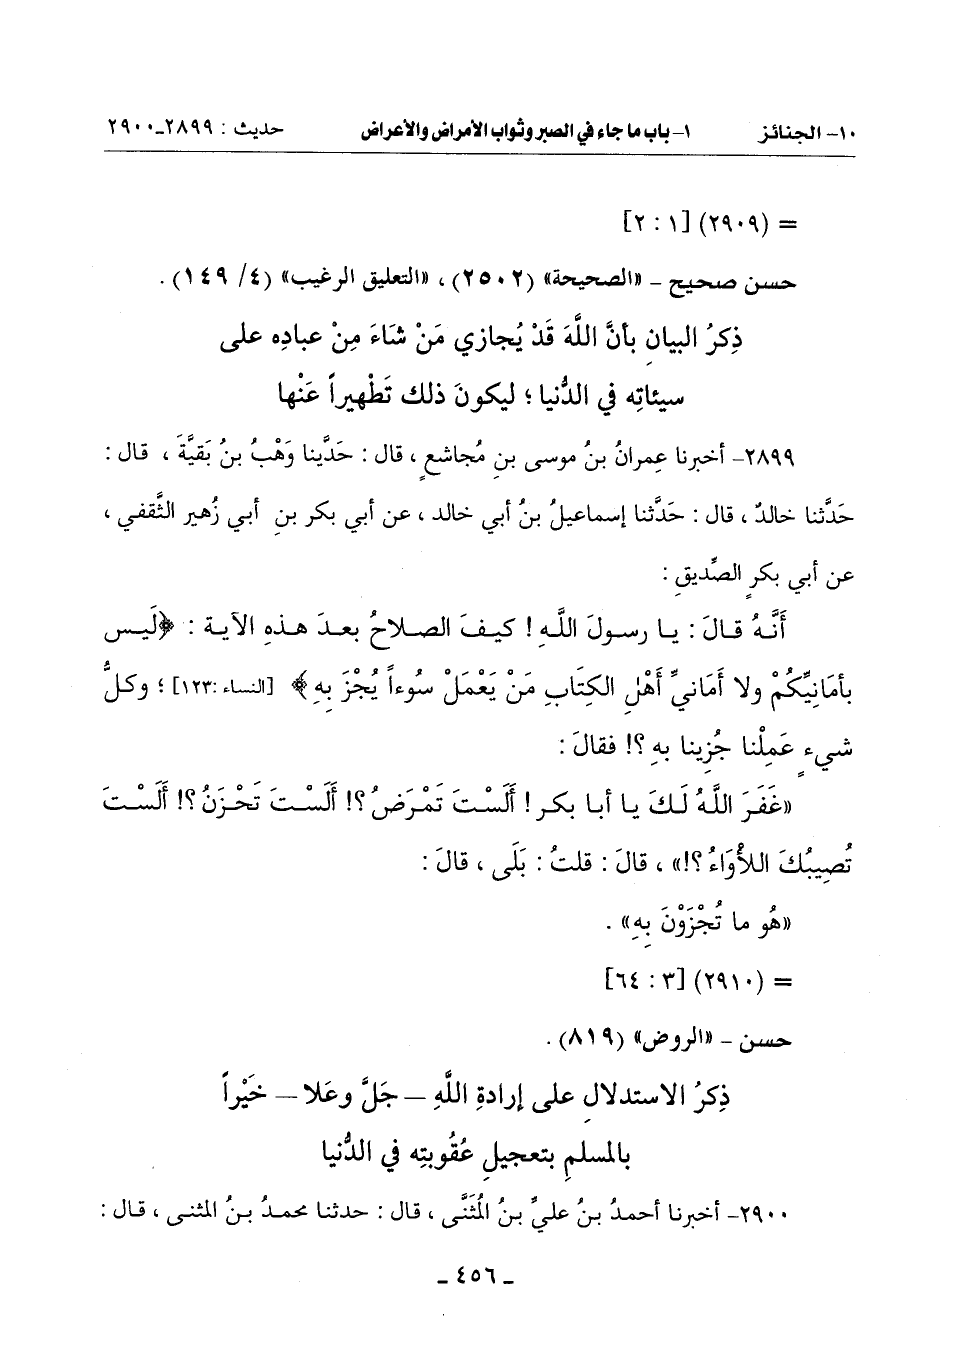 ١٠- الجنائز ١- باب ما جاء في الصبر وثواب الأمراض والأعراض حديث : ٢٨٩٩_٢٩٠٠
= (٢٩٠٩) [١ : ٢]
حسن صحيح ـ «الصحيحة» (٢٥٠٢) ، «التعليق الرغيب» (٤/ ١٤٩) .
ذِكرُ البيانِ بأنَّ اللَّهَ قَدْ يُجازي مَنْ شَاءَ مِنْ عبادِه على
سيئاتِه في الدُّنيا ؛ ليكونَ ذلك تَطْهيراً عَنْها
٢٨٩٩ـ أخبرنا عمرانُ بنُ موسى بنِ مُجاشعٍ ، قال : حَدَّينا وَهْبُ بنُ بَقيَّةَ ، قال :
حَدَّثنا خالدٌ ، قال : حَدَّثنا إسماعيلُ بنُ أبي خالد ، عن أبي بكر بنِ أبي زُهير الثَّقفي ،
عن أبي بكرٍ الصِّديقِ :
أَنَّهُ قالَ : يا رسولَ اللَّهِ ! كيفَ الصلاحُ بعدَ هذهِ الآية : ﴿لَيس
بأمَانِيِّكُمْ ولا أمَانيِّ أَهْلِ الكِتَابِ مَنْ يَعْمَلْ سُوءاً يُجْزَ بهِ﴾ [النساء :١٢٣] ؛ وكلُّ
شيءٍ عَمِلْنا جُزِينا بهِ ؟! فقالَ :
«غَفَرَ اللَّهُ لَكَ يا أبا بكر ! أَلَسْتَ تَمْرَضُ ؟! أَلَسْتَ تَحْزَنُ ؟! أَلَسْتَ
تُصِيبُكَ اللأْوَاءُ ؟!» ، قالَ : قلتُ : بَلَى ، قالَ :
«هُو ما تُجْزَوْنَ بِهِ» .
= (٢٩١٠) [٣ : ٦٤]
حسن ـ «الروض» (٨١٩) .
ذِكرُ الاستدلالِ على إرادةِ اللَّهِ ـ جَلَّ وعَلا ـ خَيْراً
بالمسلمِ بتعجيلِ عقُوبتِه في الدُّنيا
٢٩٠٠ـ أخبرنا أحمدُ بنُ عليِّ بنُ المُثَنَّى ، قال : حدثنا محمدُ بنُ المثنى ، قال :
ـ ٤٥٦ ـ